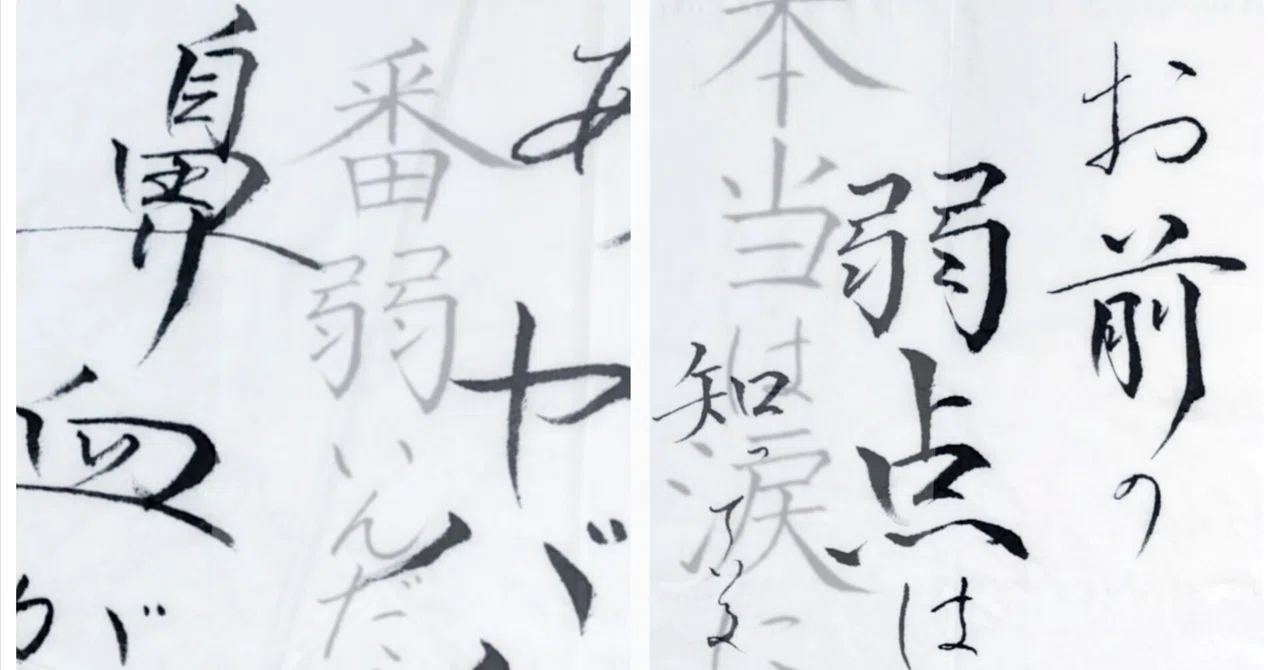 お前の
弱点は
知っている
本当は涙に
ヤバ
番弱いんだ
鼻血が